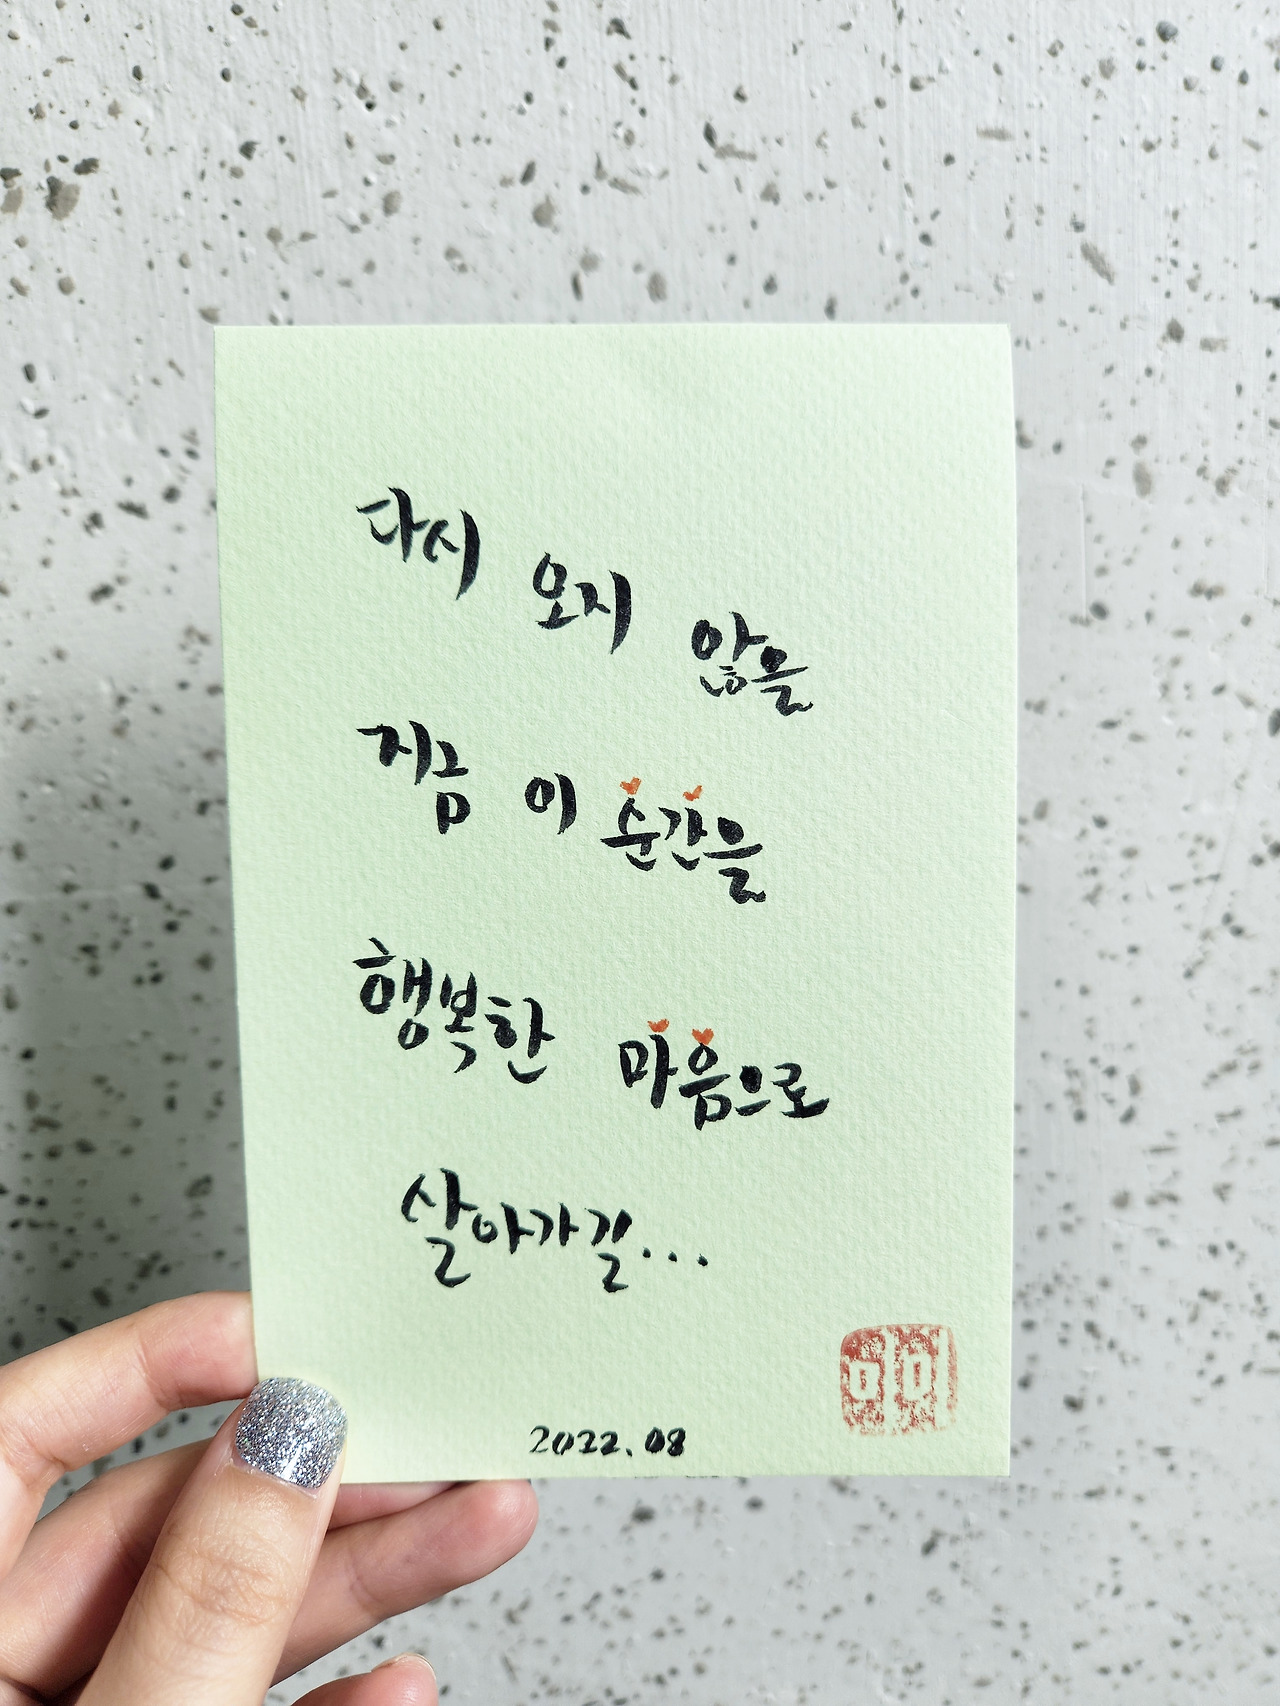 다시 오지 않을
지금 이 순간을
행복한 마음으로
살아가길...
2022.08